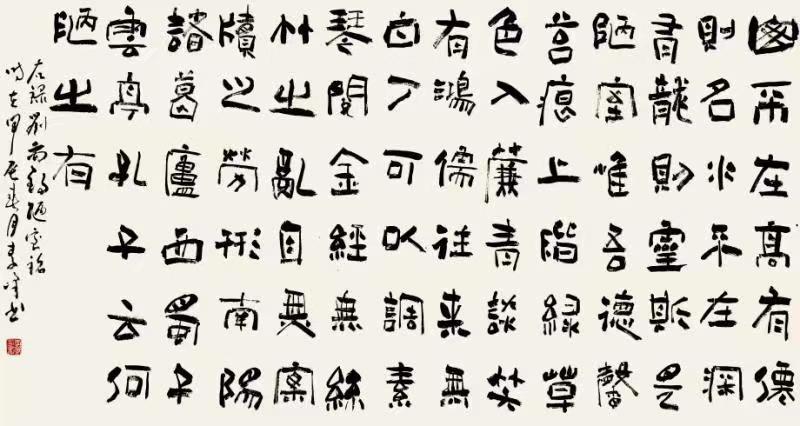 山不在高有僊
則名水不在深
有龍則靈斯是
陋室唯吾德馨
苔痕上階緑草
色入簾青談笑
有鴻儒往来無
白丁可以調素
琴閲金經無絲
竹之亂耳無案
牘之勞形南陽
諸葛廬西蜀子
雲亭孔子云何
陋之有
右録劉禹錫陋室銘
時在甲辰春月李峰書